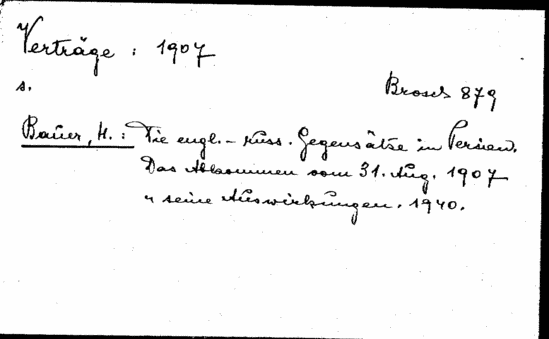 Verträge : 1907
s.
Brosch 879
Bauer, H. : Die engl. - russ. Gegensätze in Persien.
Das Abkommen vom 31. Aug. 1907
u seine Auswirkungen. 1940.